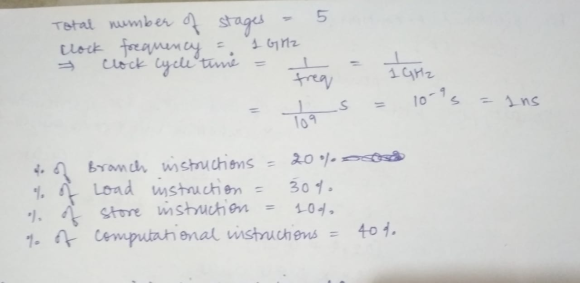 Total number of stages = 5
Clock frequency = 1 GHz
⇒ Clock cycle time = 1/freq = 1/1GHz
= 1/10⁹ s = 10⁻⁹ s = 1 ns
% of Branch instructions = 20%
% of Load instruction = 30%.
% of store instruction = 10%.
% of computational instructions = 40%.